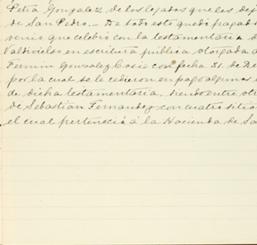 Petra Gonzalez, de los legados que les dej
de San Pedro. De todo esto quedó pagad
venio que celebró con la testamentaría d
Valdivielso en escritura pública, otorgada a
Fermin Gonzalez Cosio con fecha 31 de
por la cual se le cedieron en pago algunas
de dicha testamentaría, siendo entre ot
de Sebastian Fernandez con cuatro sitio
el cual perteneció á la Hacienda de Sa